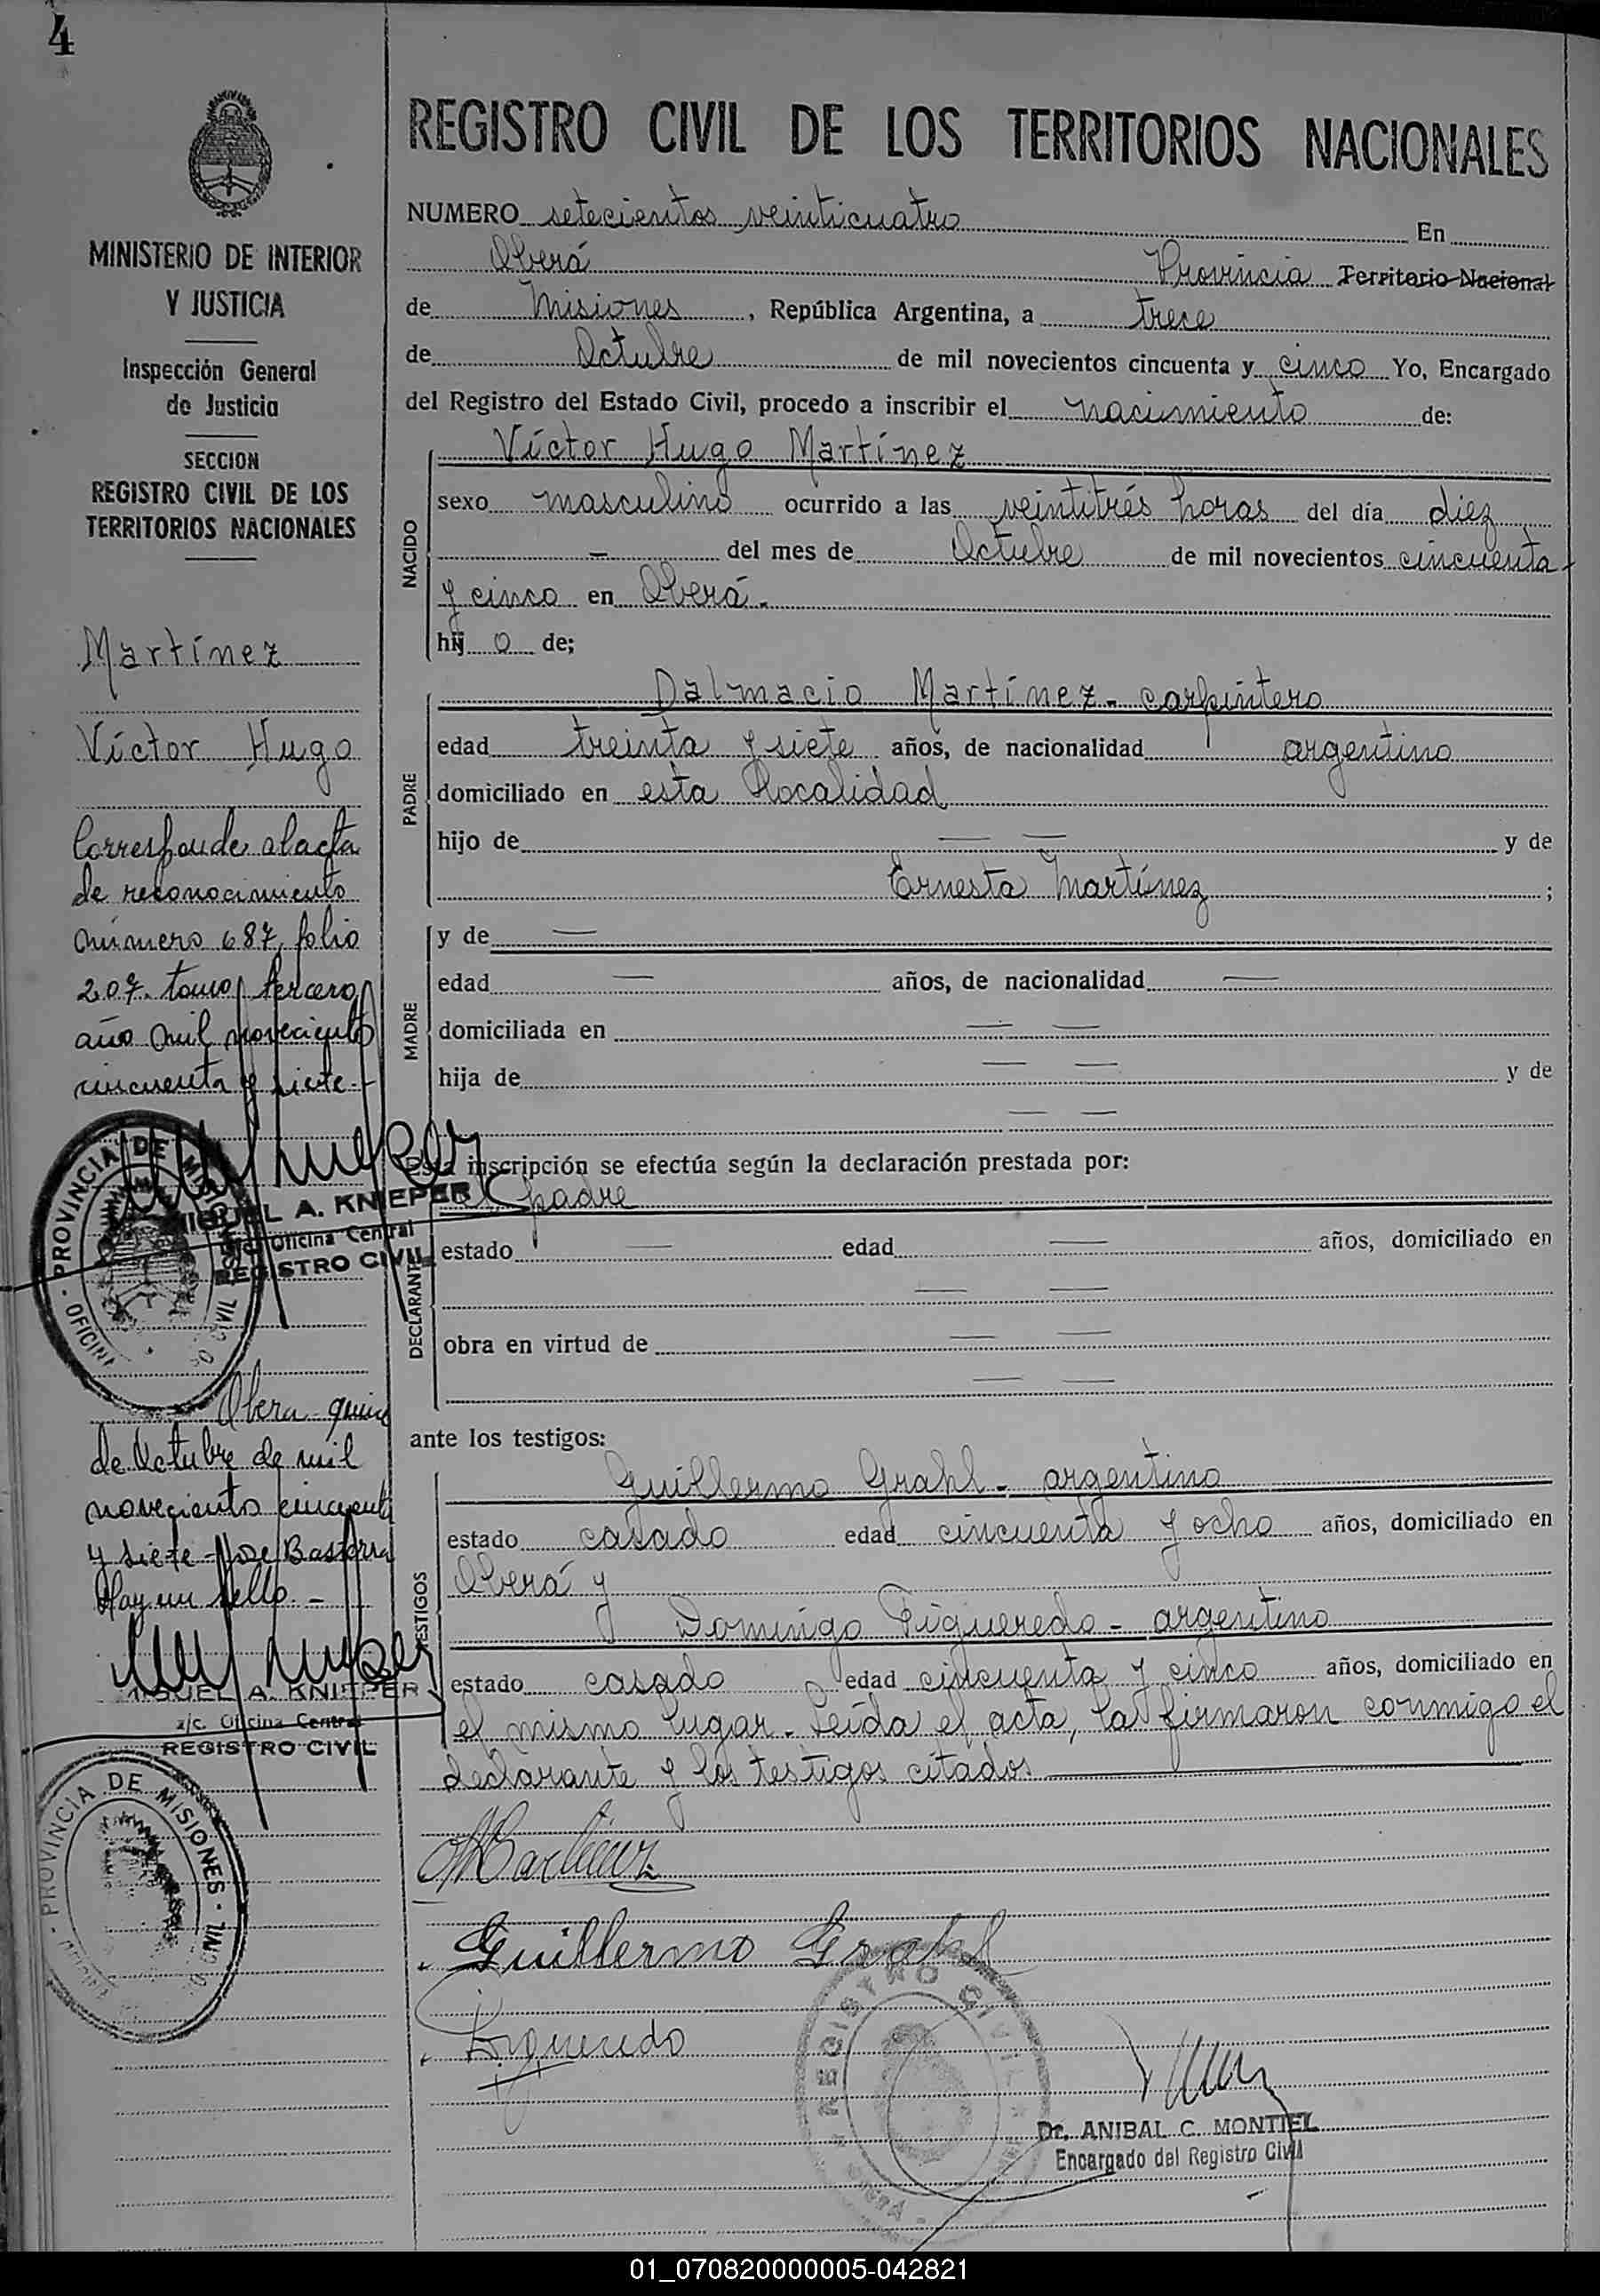 4
REGISTRO CIVIL DE LOS TERRITORIOS NACIONALES
MINISTERIO DE INTERIOR
Y JUSTICIA
Inspección General
de Justicia
SECCION
REGISTRO CIVIL DE LOS
TERRITORIOS NACIONALES
Martínez
Víctor Hugo
Corresponde al acta
de reconocimiento
número 687, folio
207. tomo tercero
año mil novecientos
cincuenta y siete
PROVINCIA DE MISIONES
MIGUEL A. KNIEPER
a/c. Oficina Central
REGISTRO CIVIL
Obera quince
de Octubre de mil
novecientos cincuenta
y siete -
Hay un sello. -
MIGUEL A. KNIEPER
a/c. Oficina Central
REGISTRO CIVIL
PROVINCIA DE MISIONES
NUMERO setecientos veinticuatro En
Oberá Provincia Territorio Nacional
de Misiones, República Argentina, a trece
de Octubre de mil novecientos cincuenta y cinco Yo, Encargado
del Registro del Estado Civil, procedo a inscribir el nacimiento de:
NACIDO
Víctor Hugo Martínez
sexo masculino ocurrido a las veintitrés horas del día diez
— del mes de Octubre de mil novecientos cincuenta
y cinco en Oberá.
hij o de;
PADRE
Dalmacio Martínez - carpintero
edad treinta y siete años, de nacionalidad argentino
domiciliado en esta localidad
hijo de — — y de
Ernesta Martínez ;
MADRE
y de —
edad — años, de nacionalidad —
domiciliada en — —
hija de — — y de
— —
Esta inscripción se efectúa según la declaración prestada por:
DECLARANTE
el padre
estado — edad — años, domiciliado en
— —
obra en virtud de — —
— —
ante los testigos:
TESTIGOS
Guillermo Grahl - argentino
estado casado edad cincuenta y ocho años, domiciliado en
Oberá y
Domingo Figueredo - argentino
estado casado edad cincuenta y cinco años, domiciliado en
el mismo lugar. Leída el acta, la firmaron conmigo el
declarante y los testigos citados
Martínez
Guillermo Grahl
Figueredo
REGISTRO CIVIL
Dr. ANIBAL C. MONTIEL
Encargado del Registro Civil
01_070820000005-042821